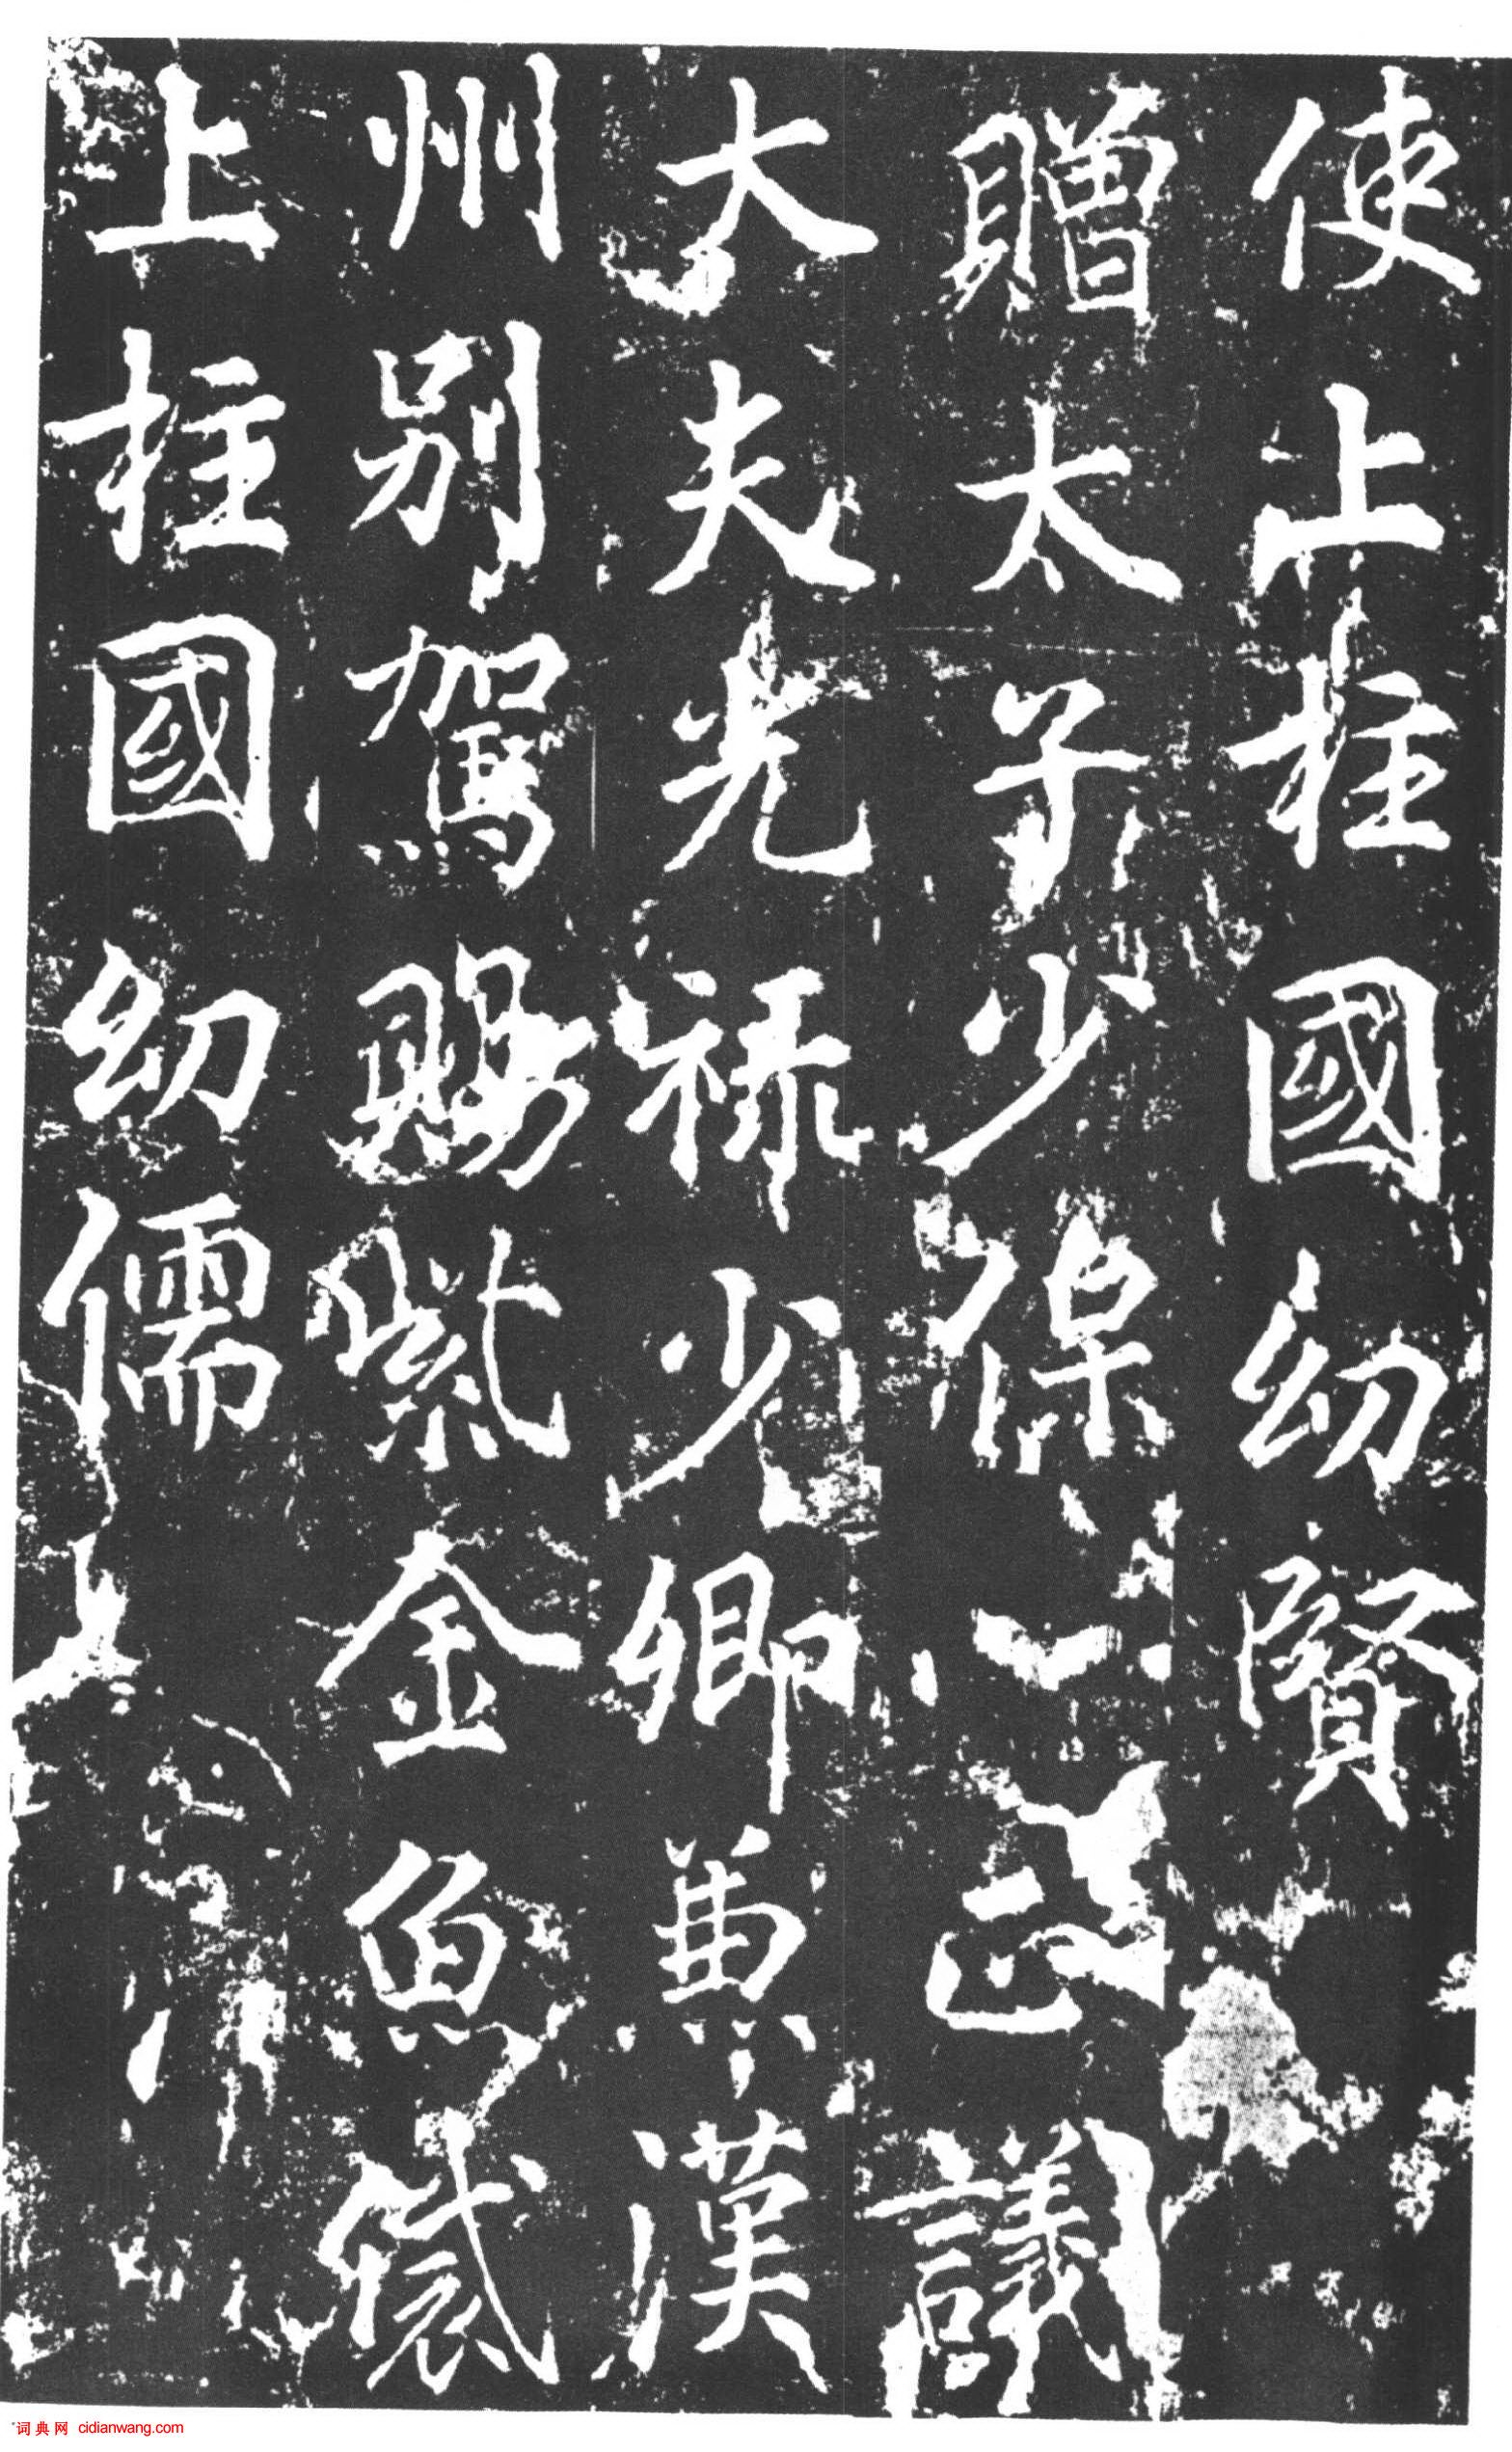 使上柱國幼賢
贈太子少保
正議
大夫光祿少卿兼漢
州別駕賜紫金魚袋
上柱國幼儒
词典网 cidianwang.com